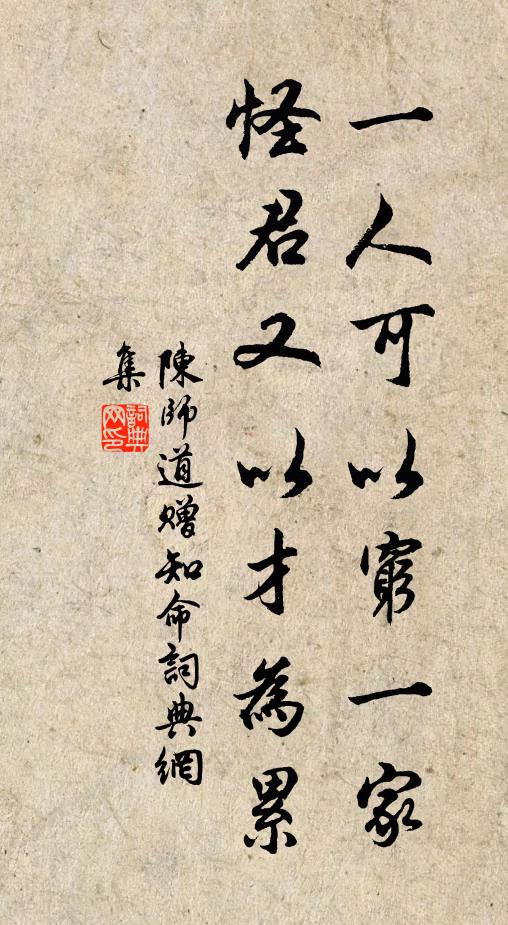 一人可以窮一家
怪君又以才為累
陳師道贈知命詞典網
集
詞典
网印